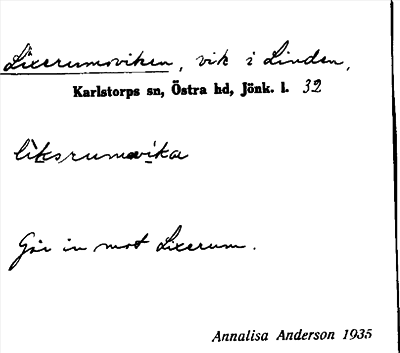 Lixerumsviken, vik i Linden,
Karlstorps sn, Östra hd, Jönk. l. 32
lìksrumsvika
Går in mot Lixerum.
Annalisa Anderson 1935